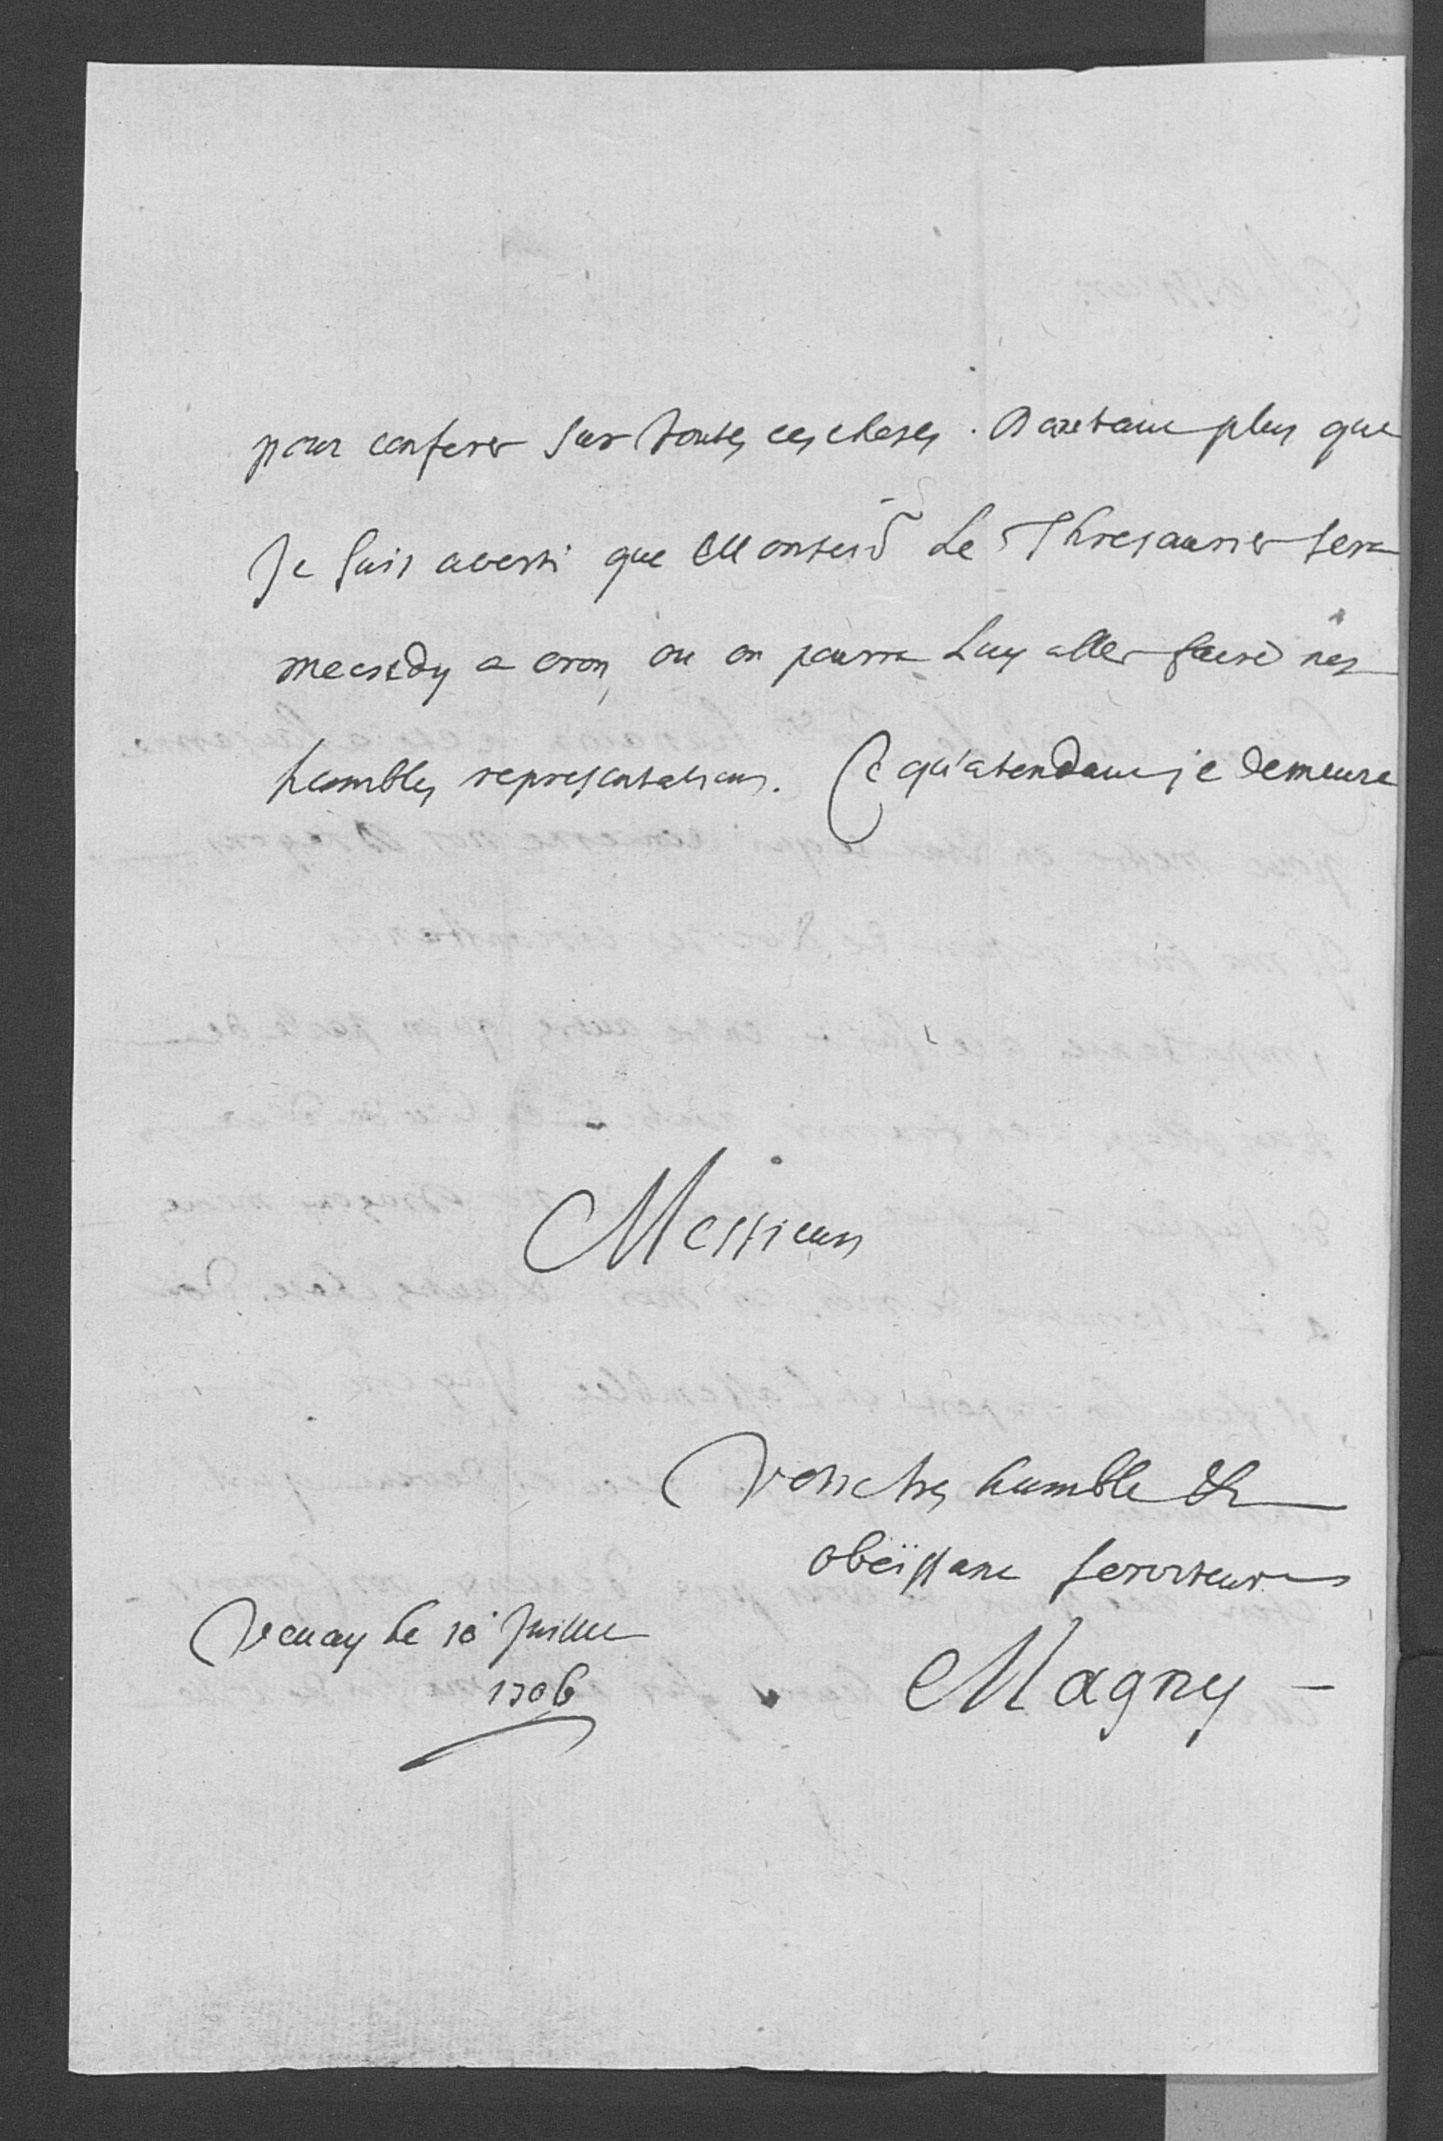 pour conferer sur toutes ces choses. Dautant plus que
Je suis averti que Monseigr Le Thresaurier sera
mecredy a oron, ou on pourra Luy aller faire nos
humbles representations. Ce qu'atendant je demeure
Messieurs
Vostre tres humble &
obeïssant serviteur
Vevay le 10 Juillet
1706
Magny